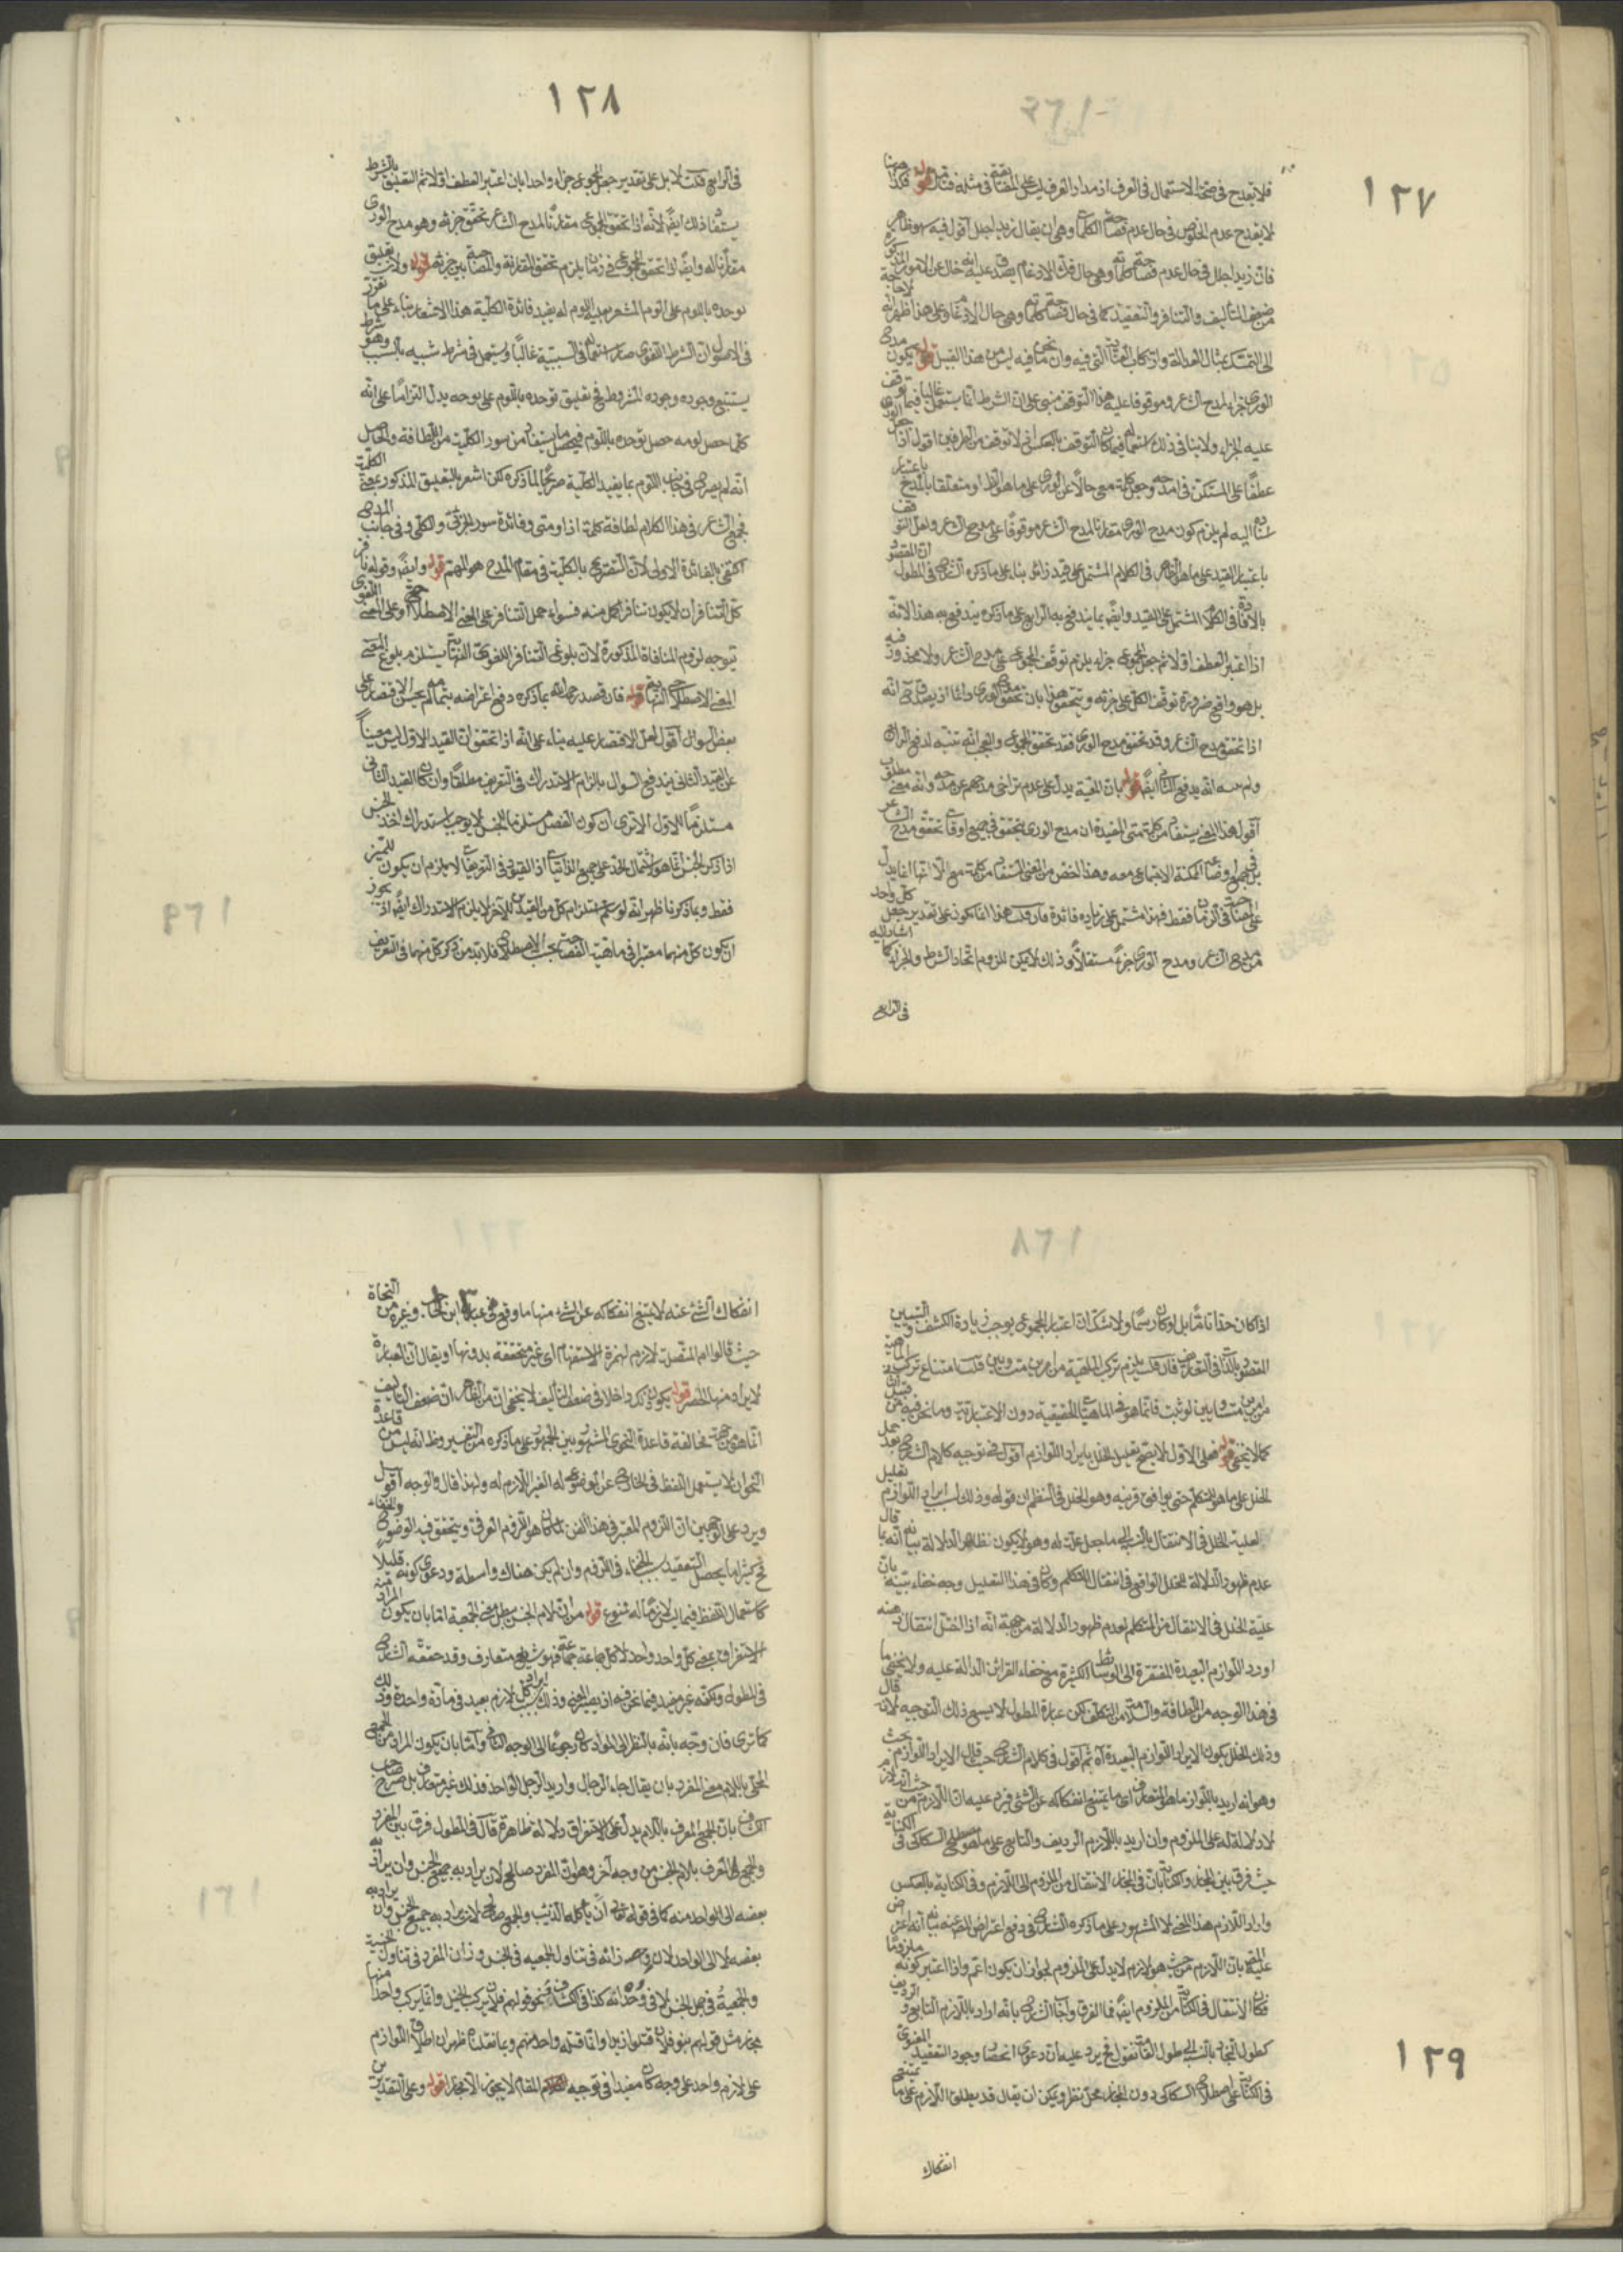 ١٢٧
فلا يقدح في صحة الاستعمال في العرف اذ مدار العرف ليس على في مثله فتأمل قوله فكذا ههنا
لا يقدح عدم الخلوص في حال عدم فصاحة الكلمات وهي ان يقال زيد اجلل اقول فيه
فان زيد اجلل في حال عدم فصاحة كلماته وهي حال فك الادغام يصدق عليه انه خال عن الامور المذكورة
من ضعف التأليف والتنافر والتعقيد كما في حال فصاحة كلماته وهي حال الادغام وعلى هذا ظهر انه لا حاجة
الى التمسك بمثال العدالة وارتكاب التي فيه وان ما نحن فيه ليس من هذا القبيل قوله يكون مدح
الورى جزاء لمدح الشاعر وموقوفا عليه هذا التوقف مبني على ان الشرط انما يستعمل غالبا فيما توقف
عليه الجزاء ولا ينافي ذلك استعماله فيما كان التوقف بالعكس او لا توقف من الطرفين اقول اذا جعل الورى
عطفا على المستكن في امدحه وجعل كلمة معي حالا عن الورى على ما هو الظاهر او متعلقا بامدح باعتبار
اليه لم يلزم كون مدح الورى مقارنا لمدح الشاعر موقوفا على مدح الشاعر ولعل التوقف
باعتبار القيد على ما هو الظاهر في الكلام المشتمل على قيد زائد بناء على ما ذكره الشارح في المطول ان المقصود
بالافادة في الكلام المشتمل على القيد وايضا بما يندفع به الرابع على ما ذكره يندفع به هذا لانه
اذا اعتبر العطف اولا ثم جعل المجموع جزاء يلزم توقف المجموع على مدح الشاعر ولا محذور فيه
بل هو واقع ضرورة توقف الكل على جزئه ويتحقق هذا بان تحقق مدح الورى دائما اذ يصدق ح انه
اذا تحقق مدح الشاعر وقد تحقق مدح الورى فقد تحقق المجموع والعجب انه تنبه لدفع الرابع
ولم انه يدفع الثاني ايضا قوله بان المعية يدل على عدم تراخي مدحهم عن مدحه وانه معنى مطلق
اقول هذا المعنى يستفاد من كلمة متى المفيدة ان مدح الورى يتحقق في جميع اوقات تحقق مدح الشاعر
بل في جميع اوضاعه الممكنة الاجتماع معه وهذا اخص من المعنى المستفاد من كلمة مع لانها انما يدل
على في الزمان فقط فهذا مشتمل على زيادة فائدة فان قلت هذا انما يكون على تقدير جعل كل واحد
من مدح الشاعر ومدح الورى جزءا مستقلا وذلك لا يمكن للزوم اتحاد الشرط والجزاء كما اشار اليه
في الرابع
١٢٨
في الرابع قلت لا بل على تقدير جعل المجموع جزاء واحدا بان اعتبر العطف اولا ثم التعليق بالشرط
يستفاد ذلك ايضا لانه اذا تحقق المجموع مقارنا لمدح الشاعر تحقق جزئه وهو مدح الورى
مقارنا له وايضا اذا تحقق المجموع في زمان يلزم تحقق المقارنة والمصاحبة بين جزئيه قوله ولان تعليق
توحده باللوم على اللوم المشعر بعدم اللوم له يفيد فائدة الكلية هذا الاشعار بناء على ما تقرر
في الاصول ان الشرط اللغوي صار استعماله في السببية غالبا ويستعمل في شرط شبيه بالسبب وهو شرط
يستتبع وجوده وجود المشروط ففي تعليق توحده باللوم على لومه يدل التزاما على انه
كلما حصل لومه حصل توحده باللوم فيحصل ما يستفاد من سور الكلية من اللطافة والحاصل
انه لم يصرح في جانب اللوم بما يفيد الكلية صريحا لما ذكره لكن اشعر بالتعليق المذكور بمعنى الكلية
فجمع الشاعر في هذا الكلام لطافة كلمة اذا ومتى وفائدة سور الجزئي والكلي وفي جانب المدح
اكتفى بالفائدة الاولى لان التصريح بالكلية في مقام المدح هو المهم قوله وايضا وقوله
كل التنافر ان لا يكون تنافر اكمل منه فسواء حمل التنافر على المعنى الاصطلاحي او على المعنى اللغوي
يتوجه لزوم المنافاة المذكورة لان بلوغ التنافر اللغوي النهاية يستلزم بلوغ المعنى
المعنى الاصطلاحي النهاية قوله فان قصد رحمه الله بما ذكره دفع اعتراضه بتمامه لم يحسن الاقتصار على
بعض السؤال اقول لعل الاقتصار عليه بناء على انه اذا تحقق ان القيد الاول ليس مغنيا
عن القيد الثاني يندفع السؤال بالزام الاستدراك في التعريف مطلقا وان كان القيد الثاني
مستلزما للاول الا ترى ان كون الفصل مستلزما للجنس لا يوجب استدراك اخذ الجنس
اذا ذكر الجنس انما هو لاشتمال الحد على جميع الذاتيات اذ القيود في التعريفات لا يلزم ان يكون للتميز
فقط وبما ذكرنا ظهر انه لو سلم استلزام كل من القيدين للآخر لا يلزم الاستدراك ايضا اذ يجوز
ان يكون كل منهما معتبرا في ماهية الفصاحة بحسب الاصطلاح فلا بد من ذكر كل منهما في التعريف
اذا كان حدا تاما بل او كان رسما ولا شك ان اعتبار المجموع يوجب زيادة الكشف والتبيين
المقصود بالذات في التعاريف فان قلت يلزم تركب الماهية من امرين متساويين قلت امتناع تركب الماهية
من امرين متساويين لو ثبت فانما هو في الماهيات الحقيقية دون الاعتبارية وما نحن فيه من قبيل
كما لا يخفى قوله فعلى الاول لا يصح تعليل الخلل بايراد اللوازم اقول في توجيه كلام الشارح بعد حمل
الخلل على ما هو للمتكلم حتى يوافق قرينه وهو الخلل في النظم ان قوله وذلك بسبب ايراد اللوازم تعليل
لعلية الخلل في الانتقال بالنسبة الى ما جعل علة له وهو لا يكون ظاهر الدلالة بيانه انه قال
عدم ظهور الدلالة للخلل الواقع في انتقال المتكلم وكان في هذا التعليل وجه خفاء بينه بان
علية الخلل في الانتقال من المتكلم لعدم ظهور الدلالة من جهة انه اذا اختل انتقال ذهنه
اورد اللوازم البعيدة المفتقرة الى الوسائط الكثيرة مع خفاء القرائن الدالة عليه ولا يخفى ما
في هذا التوجيه من اللطافة والسلامة من التكلف لكن عبارة المطول لا يسع ذلك التوجيه لانه قال
وذلك الخلل يكون لايراد اللوازم البعيدة اه ثم اقول في كلام الشارح حيث قال لايراد اللوازم بحث
وهو انه اريد باللوازم ما هو المتعارف اي ما يمتنع انفكاكه عن الشئ فيرد عليه ان اللازم من حيث انه لازم
لا دلالة له على الملزوم وان اريد باللازم الرديف والتابع على ما هو مصطلح السكاكي في الكناية
حيث فرق بين المجاز والكناية بان في المجاز الانتقال من الملزوم الى اللازم وفي الكناية بالعكس
واراد اللازم هذا المعنى لا المشهور على ما ذكره الشارح في دفع اعتراض المصنف عنه بيانه انه اعترض
عليه المصنف بان اللازم من حيث هو لازم لا يدل على الملزوم لجواز ان يكون اعم واذا اعتبر كونه ملزوما
فكان الانتقال في الكناية من الملزوم ايضا فما الفرق واجاب الشارح بانه اراد باللازم التابع والرديف
كطول النجاد بالنسبة الى طول القامة فنقول ح يرد عليه ان دعوى انحصار وجود التعقيد المعنوي
في الكناية على اصطلاح السكاكي دون المجاز محل نظر ويمكن ان يقال قد يطلق اللازم على ما يمتنع
١٢٩
انفكاك
انفكاك الشئ عنه لا يمتنع انفكاكه عن الشئ منها ما وقع في عبارة ابن الحاجب وغيره من النحاة
حيث قالوا ام المتصلة لازم لهمزة الاستفهام اي غير متحققة بدونها او يقال ان العبارة
لا يراد منها الحصر قوله يكون ذكره داخلا في ضعف التأليف لا يخفى ان من الظاهر ان ضعف التأليف
انما هو من جهة مخالفة قاعدة النحوي المشهورة بين الجمهور على ما ذكره من التفسير وظ انه ليس من قاعدة
النحو ان لا يستعمل اللفظ في الخارج عن الموضوع له الغير اللازم له ولهذا قال والوجه اقول
ويرد على الوجهين ان اللزوم المعتبر في هذا الفن لما كان هو اللزوم العرفي ويتحقق فيه الوضوح والخفاء
ح كثيرا ما يحصل التعقيد بسبب الخفاء في اللزوم وان لم يكن هناك واسطة ودعوى كونه قليلا
كاستعمال اللفظ فيما ليس لازما له ممنوع قوله من ان لام الجنس يبطل معنى الجمعية اما بان يكون المراد منه
الاستغراق بمعنى كل واحد واحد لا كل جماعة جماعة فهو شايع متعارف وقد حققه الشارح
في المطول ولكنه غير مفيد فيما نحن فيه اذ يصير المعنى وذلك بسبب ايراد كل لازم بعيد في مادة واحدة وذلك
كما ترى فان وجه بانه بالنظر الى المواد كان رجوعا الى الوجه الثاني واما بان يكون المراد من الجمع
المحلى باللام معنى المفرد بان يقال جاء الرجال واريد الرجل الواحد فذلك غير متعارف بل صرح صاحب
الكشاف بان الجمع المعرف باللام يدل على الاستغراق دلالة ظاهرة قال في المطول فرق بين المفرد
والجمع المعرف بلام الجنس من وجه آخر وهو ان المفرد صالح لان يراد به جميع الجنس وان يراد به
بعضه الى الواحد منه كما في قوله تعالى ان يأكله الذئب والجمع صالح لان يراد به جميع الجنس وان يراد به
بعضه لا الى الواحد لان وزانه في تناول الجمعية في الجنس وزان المفرد في تناول الجنسية
والجمعية في جمل الجنس لا في وحدانه كذا في الكشاف فنحو قولهم فلان يركب الخيل وانما يركب واحدا منها
مجاز مثل قولهم بنو فلان قتلوا زيدا وانما قتله واحد منهم وبما نقلنا ظهر ان اطلاق اللوازم
على لازم واحد على وجه كان مفيدا في توجيه المقام لا يجوز الا مجازا قوله وعلى التقديرين